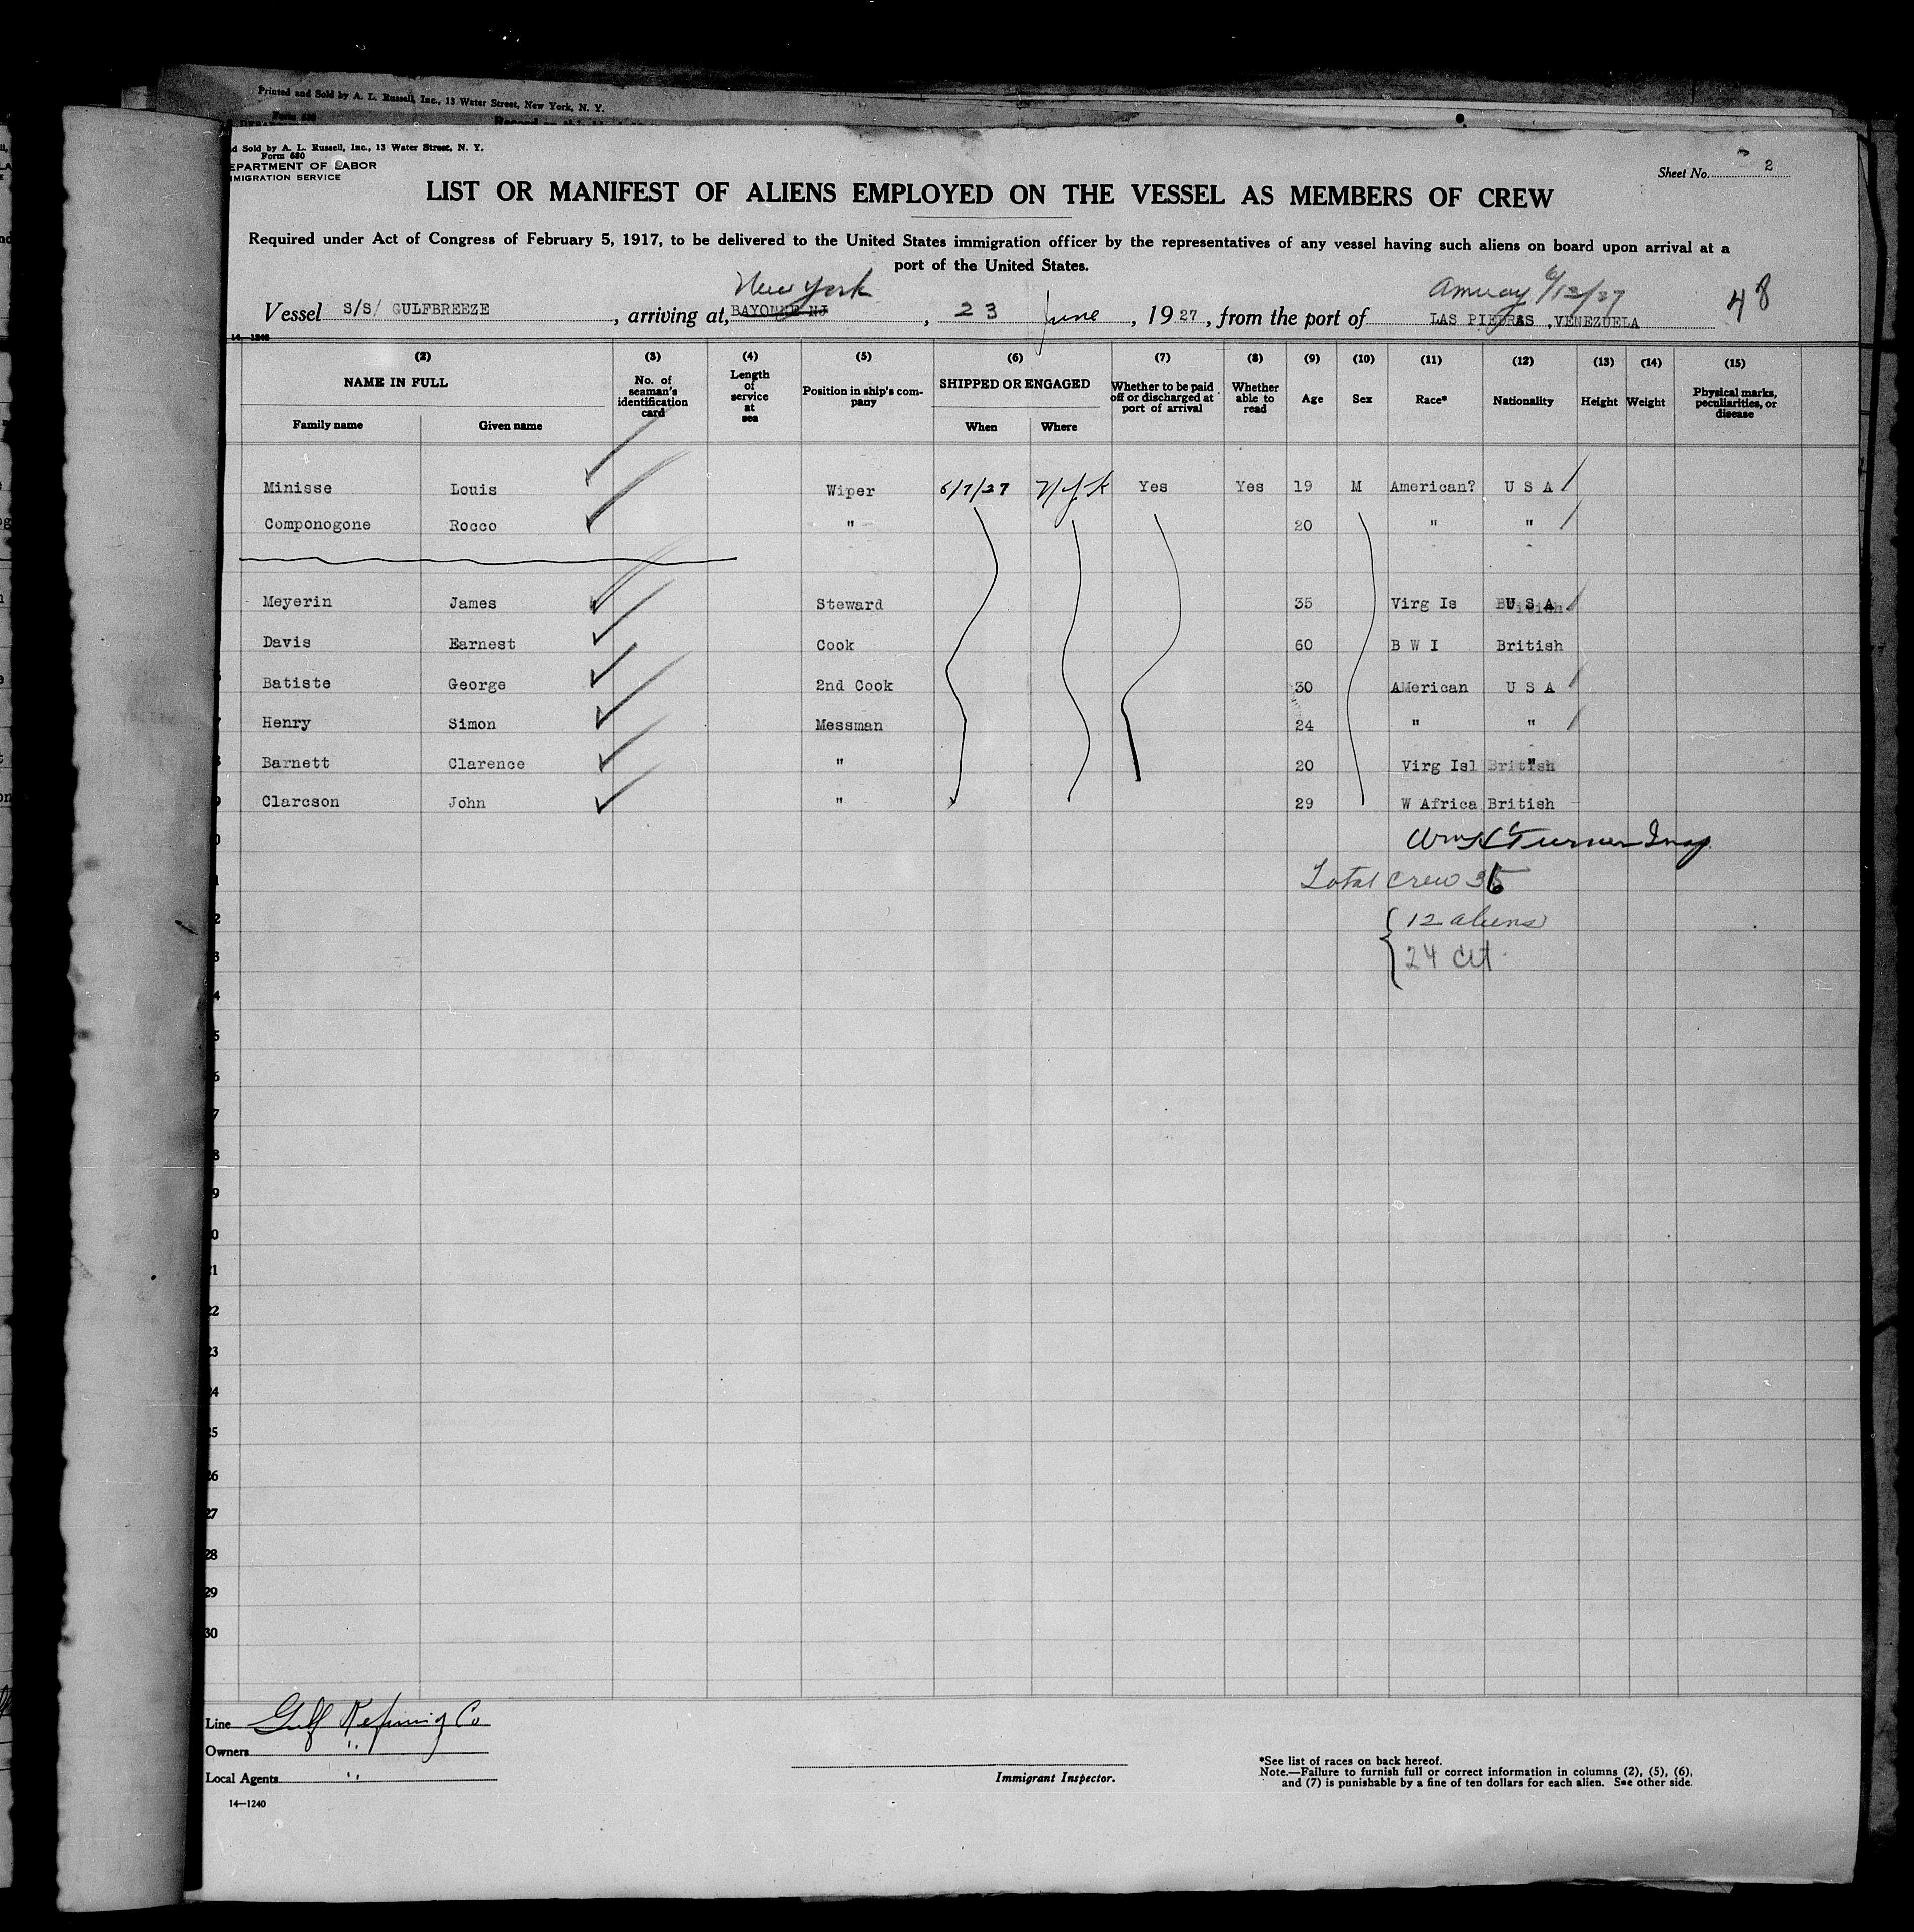 Printed and Sold by A. L. Russell, Inc., 13 Water Street, New York, N. Y.
Form 680
d Sold by A. L. Russell, Inc., 13 Water Street, N. Y.
Form 680
EPARTMENT OF LABOR
MIGRATION SERVICE
Sheet No. 2
LIST OR MANIFEST OF ALIENS EMPLOYED ON THE VESSEL AS MEMBERS OF CREW
Required under Act of Congress of February 5, 1917, to be delivered to the United States immigration officer by the representatives of any vessel having such aliens on board upon arrival at a
port of the United States.
New York Amuay 6/13/27 48
Vessel S/S/ GULFBREEZE, arriving at, BAYONNE NJ, 23 June, 1927, from the port of LAS PIEDRAS ,VENEZUELA
14—1240
(2) (3) (4) (5) (6) (7) (8) (9) (10) (11) (12) (13) (14) (15)
NAME IN FULL No. of seaman's identification card Length of service at sea Position in ship's company SHIPPED OR ENGAGED Whether to be paid off or discharged at port of arrival Whether able to read Age Sex Race* Nationality Height Weight Physical marks, peculiarities, or disease
Family name Given name When Where
Minisse Louis Wiper 6/7/27 N.Y.K Yes Yes 19 M American? U S A
Componogone Rocco " 20 " "
Meyerin James Steward 35 Virg Is U S A
Davis Earnest Cook 60 B W I British
Batiste George 2nd Cook 30 AMerican U S A
Henry Simon Messman 24 " "
Barnett Clarence " 20 Virg Isl British "
Clarcson John " 29 W Africa British
Turner Insp.
Total crew 36
12 aliens
24 cit.
22
23
24
25
26
27
28
29
30
Line Gulf Refining Co
Owners "
Local Agents "
14—1240
Immigrant Inspector.
*See list of races on back hereof.
Note.—Failure to furnish full or correct information in columns (2), (5), (6),
and (7) is punishable by a fine of ten dollars for each alien. See other side.